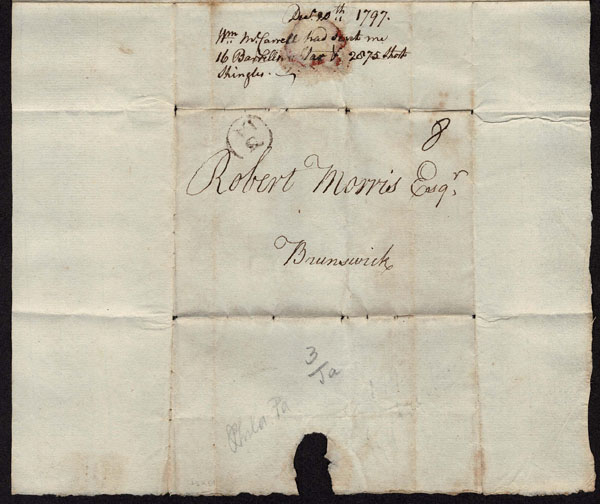 Decr. 20th 1797.
Wm. McCarrell had sent me
16 Barrells Tar & 2875 Short
Shingles.
3
JA
8
Robert Morris Esqr.
Brunswick
3/Ja
Phila Pa